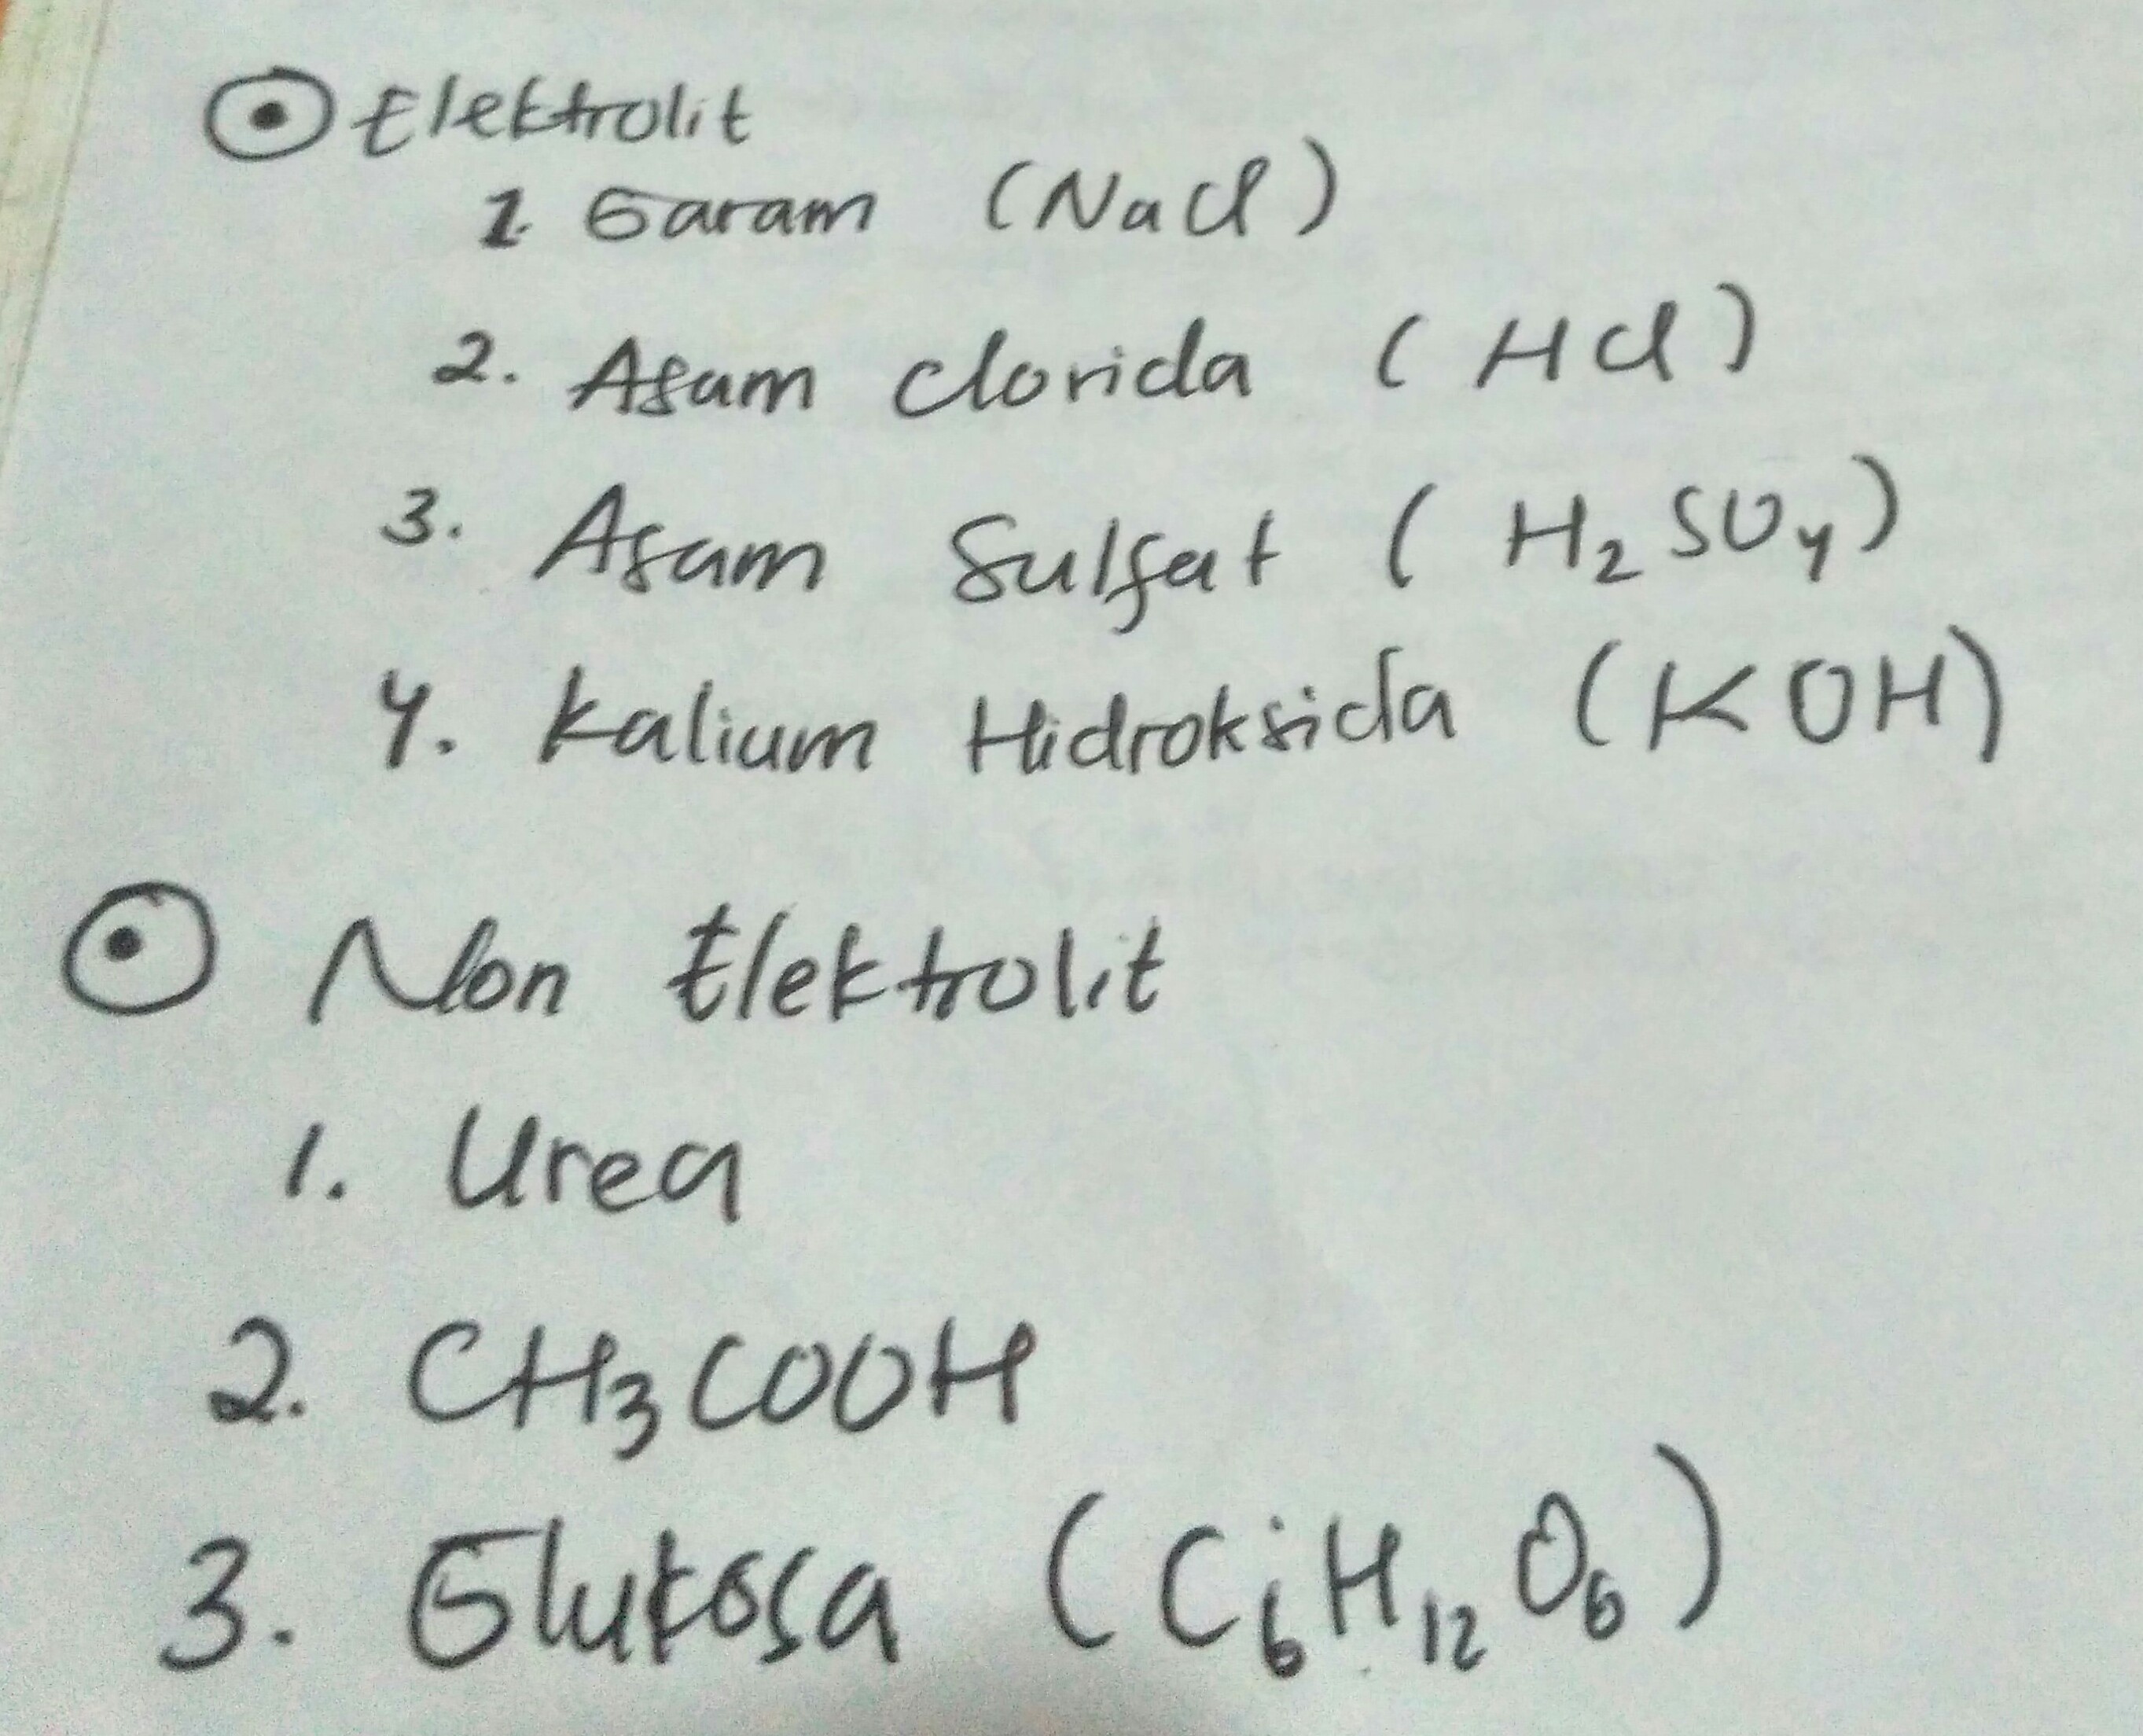 Elektrolit
1. Garam (NaCl)
2. Asam Clorida (HCl)
3. Asam Sulfat (H₂SO₄)
4. Kalium Hidroksida (KOH)
Non Elektrolit
1. Urea
2. CH₃COOH
3. Glukosa (C₆H₁₂O₆)